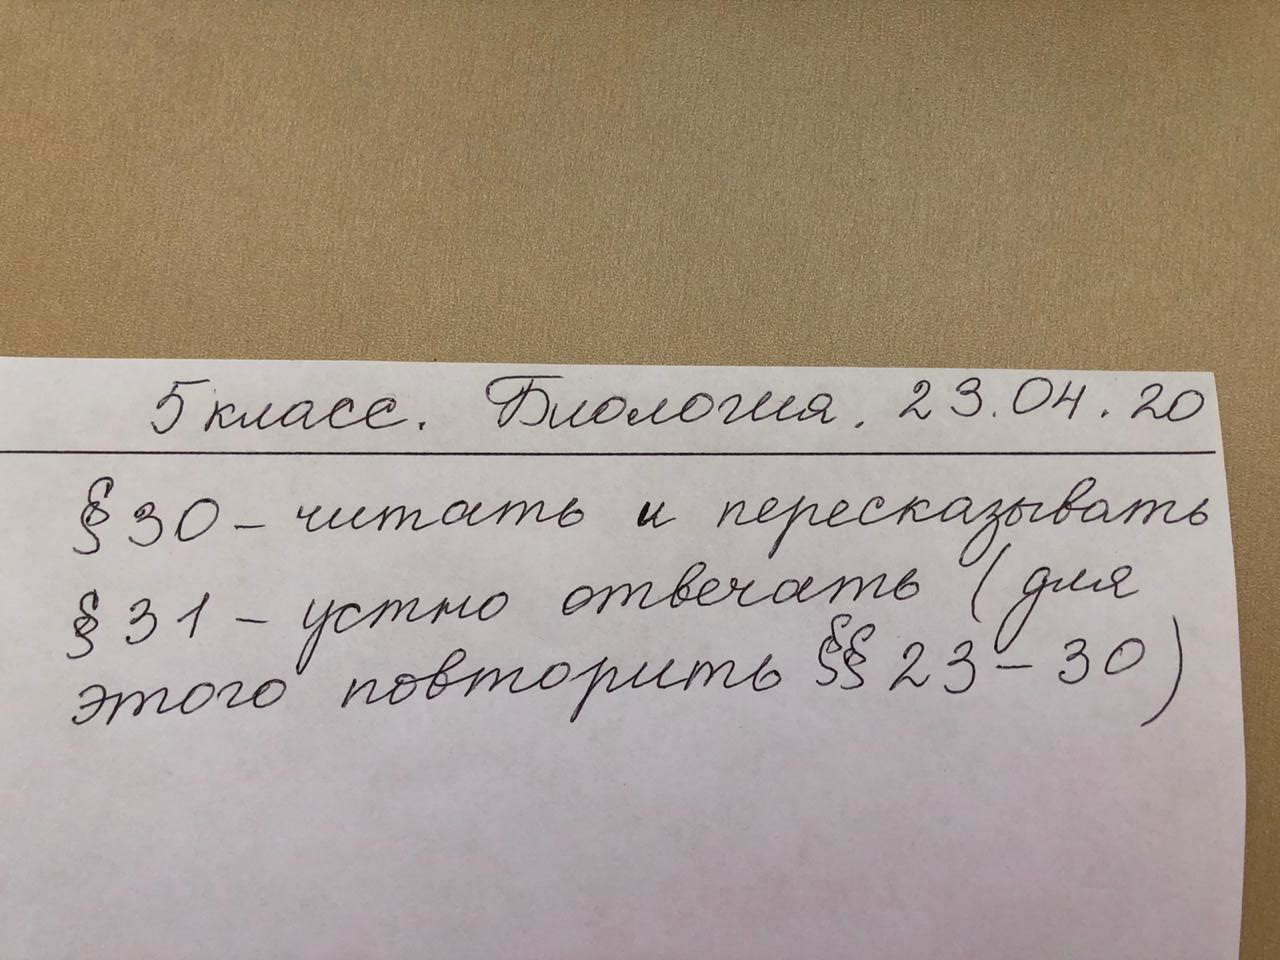 5 класс. Биология. 23.04.20
§ 30 – читать и пересказывать
§ 31 – устно отвечать (для
этого повторить §§ 23 – 30)